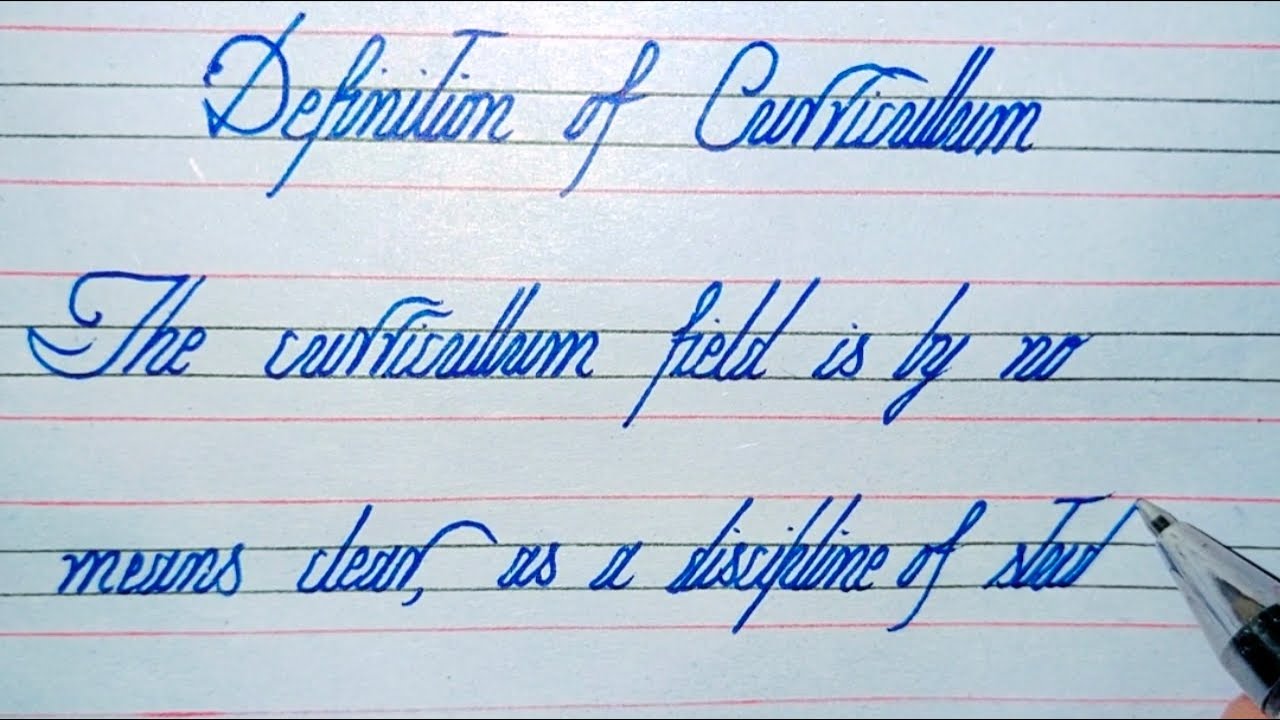 Definition of Curriculum
The curriculum field is by no
means clear, as a discipline of stud